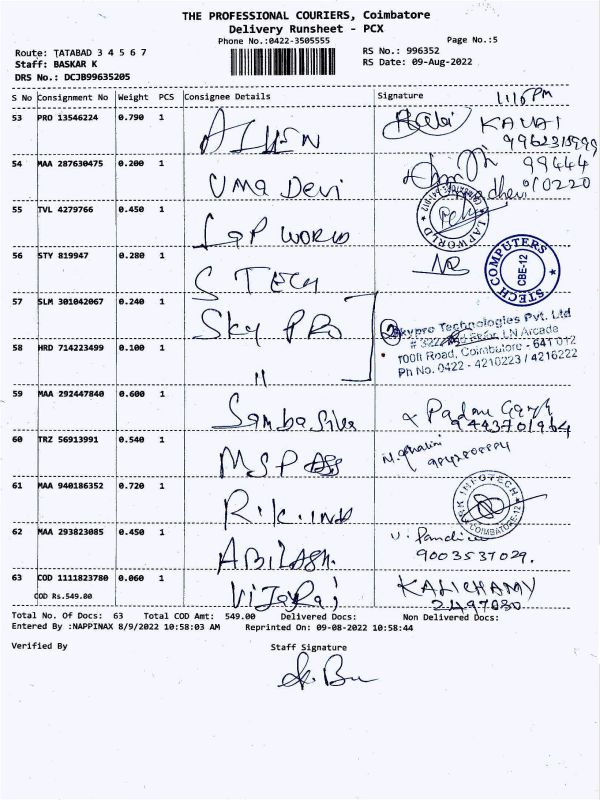 THE PROFESSIONAL COURIERS, Coimbatore
Delivery Runsheet - PCX
Phone No.:0422-3505555
Page No.:5
Route: TATABAD 3 4 5 6 7
RS No.: 996352
Staff: BASKAR K
RS Date: 09-Aug-2022
DRS No.: DCJB99635205
S No Consignment No Weight PCS Consignee Details Signature 1:15 PM
53 PRO 13546224 0.790 1 KAVAI
54 MAA 287630475 0.200 1 Uma Devi 99444
010220
55 TVL 4279766 0.450 1 LAP WORLD LAP WORLD
56 STY 819947 0.280 1 S TECH STECH COMPUTERS CBE-12
57 SLM 301042067 0.240 1 SKY PRO Skypro Technologies Pvt. Ltd
LN Arcade
100ft Road, Coimbatore - 641 012
Ph No. 0422 - 4210223 / 4216222
58 HRD 714223499 0.100 1 "
59 MAA 292447840 0.600 1 Samba Siva Padma
9443701964
60 TRZ 56913991 0.540 1 MSP
61 MAA 940186352 0.720 1 INFOTECH COIMBATORE-12
62 MAA 293823085 0.450 1 ABILASH.
9003537029.
63 COD 1111823780 0.060 1 Vijayraj KALICHAMY
COD Rs.549.00 2497030
Total No. Of Docs: 63 Total COD Amt: 549.00 Delivered Docs: Non Delivered Docs:
Entered By :NAPPINAX 8/9/2022 10:58:03 AM Reprinted On: 09-08-2022 10:58:44
Verified By Staff Signature